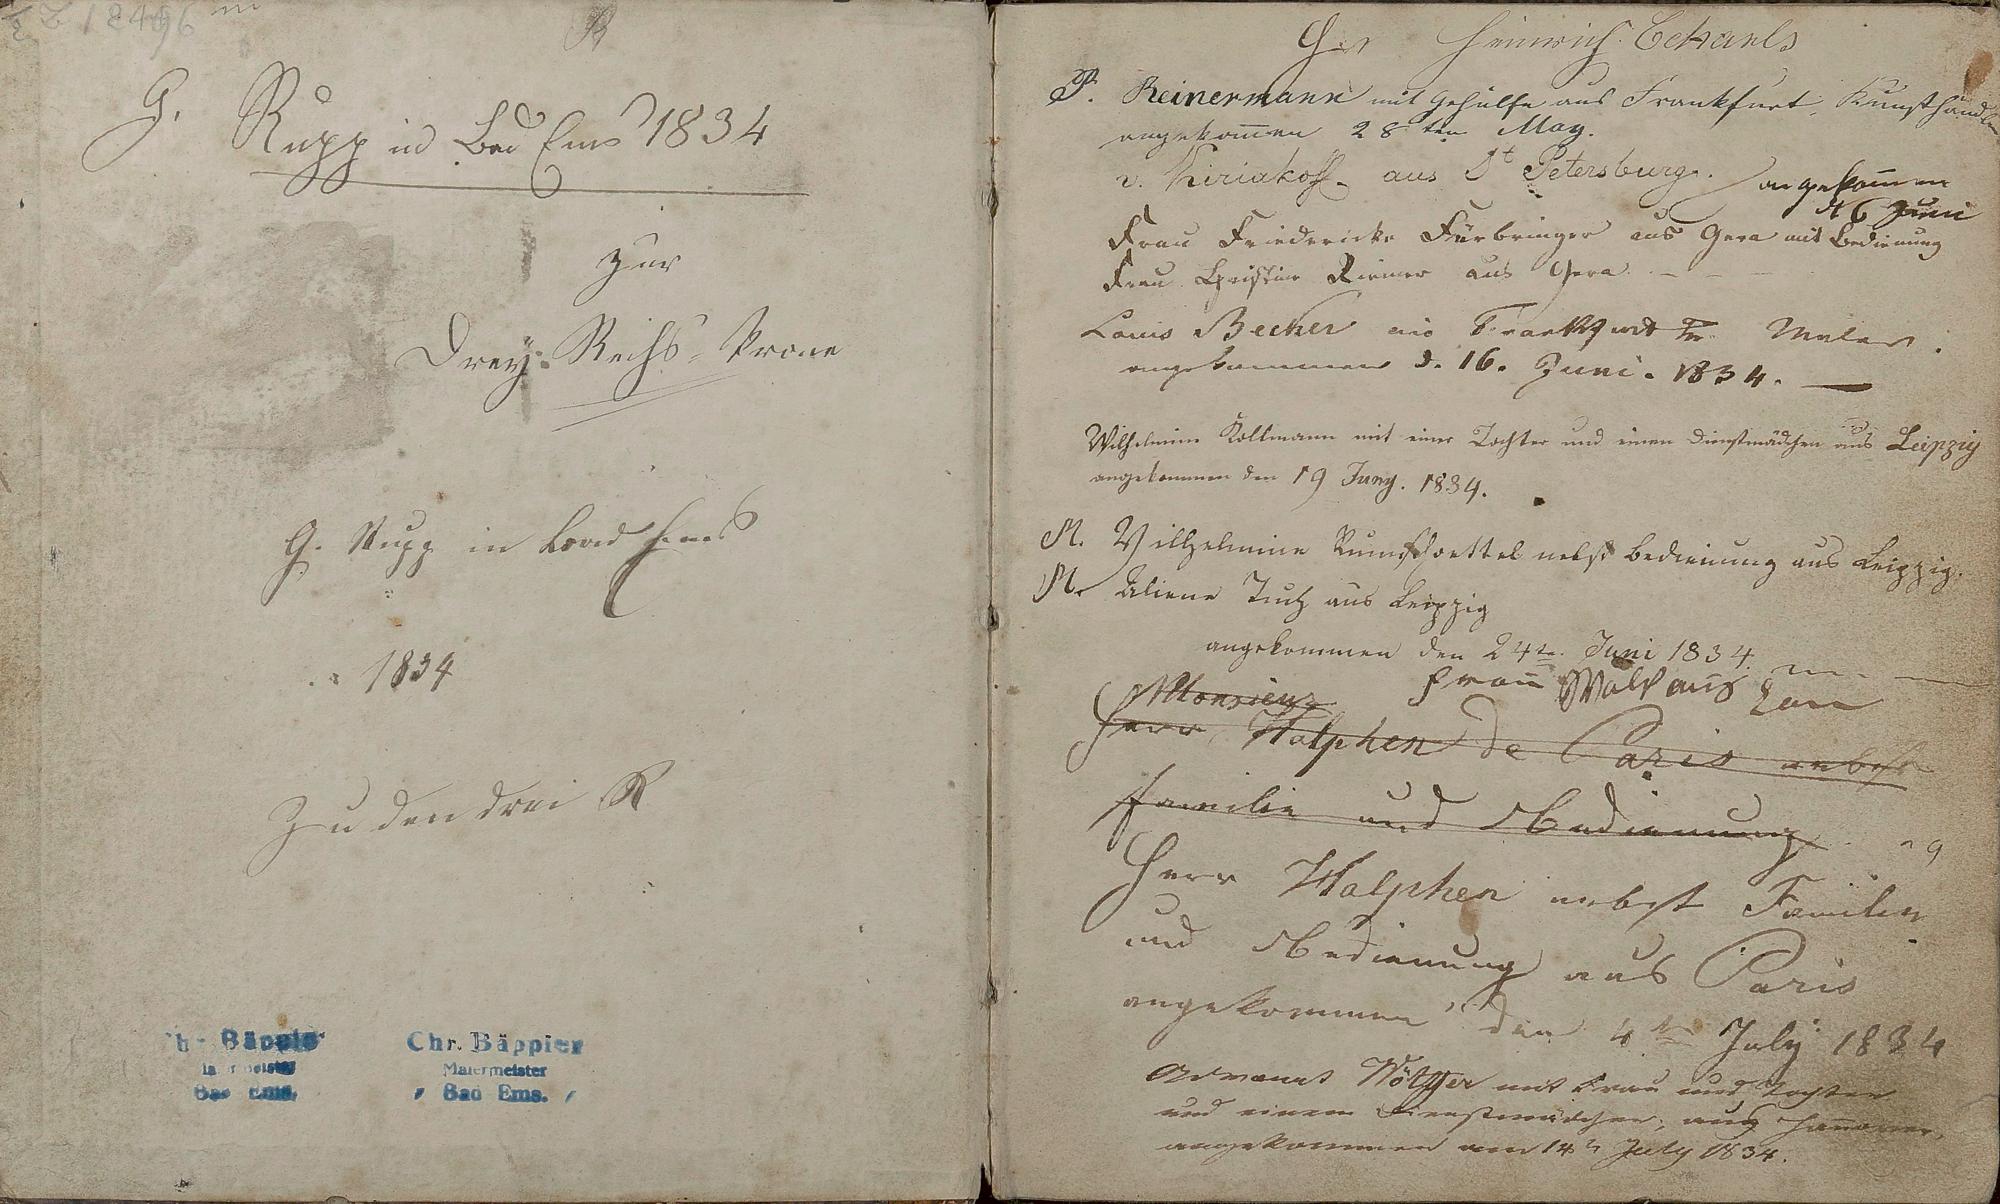 G. Rupp in Bad Ems 1834
zur
Drey Reichs-Krone
G. Rupp in Baad Ems
1834
Zu den drei R
Chr. Bäppler
Malermeister
Bad Ems.
Chr. Bäppler
Malermeister
Bad Ems.
Heinrich
F. Reinermann mit Gehülfe aus Frankfurt, Kunsthändler
angekom̄en 28ten May.
v. Kiriakoff aus St Petersburg. angekom̄en
16 Juni
Frau Friedericke Fürbringer aus Gera mit Bedienung
Frau Christine Riemer aus Gera
Louis Becker aus Frankfurt Maler.
angekommen d. 16. Juni. 1834.
Wilhelmine Kollmann mit einer Tochter und einen Dienstmädchen aus Leipzig
angekommen den 19 Juny. 1834.
M. Wilhelmine nebst Bedienung aus Leipzig.
M. Aliene aus Leipzig
angekommen den 24tn. Juni 1834.
Frau Wolf aus
Monsieur
Herr Halphen de Paris nebst
Familie und Bedienung
Herr Halphen nebst Familie
und Bedienung aus Paris
angekommen den 4tn July 1834
Advocat mit Frau und Tochter
und einem Dienstmädchen, aus Hannover,
angekommen am 14tn July 1834.